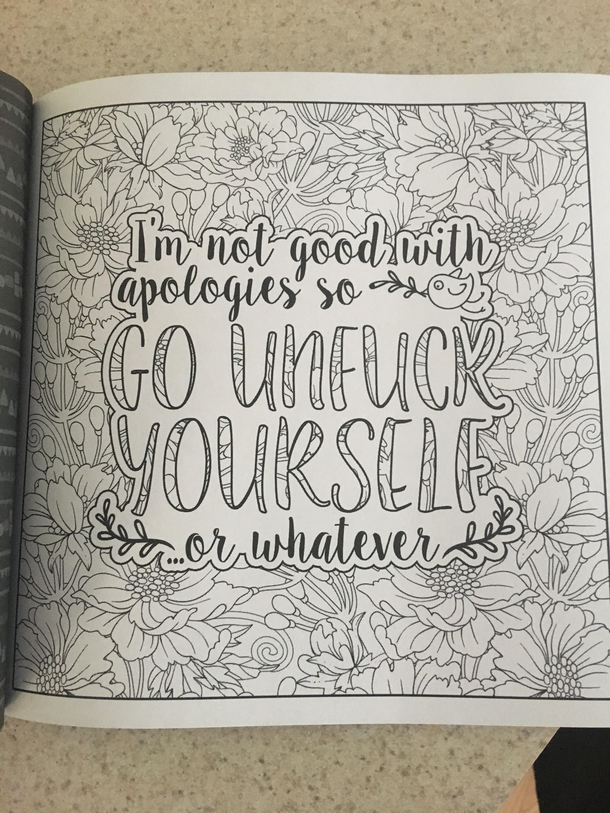 I'm not good with
apologies so
GO UNFUCK
YOURSELF
...or whatever